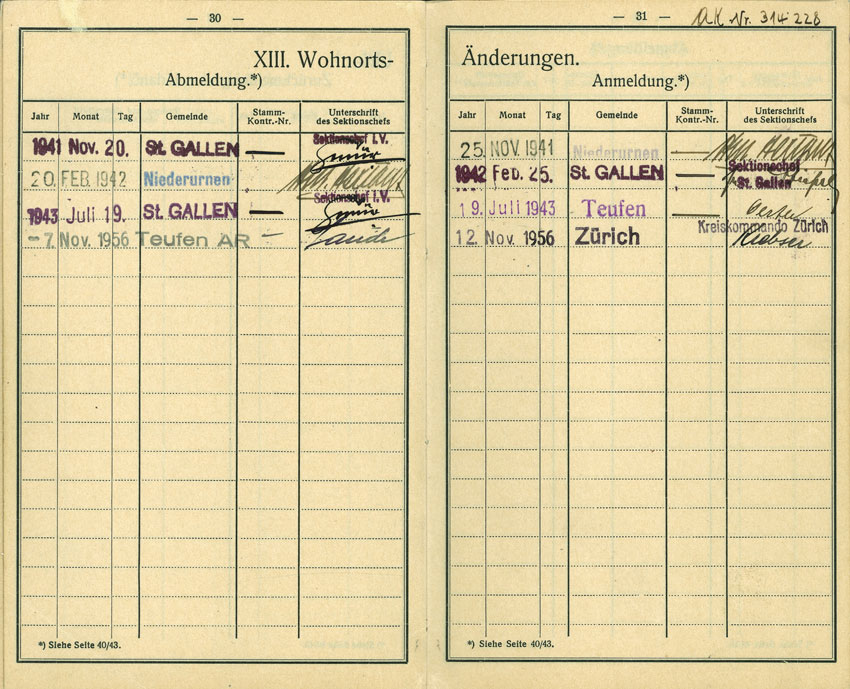 — 30 —
XIII. Wohnorts-
Abmeldung.*)
Jahr Monat Tag Gemeinde Stamm-Kontr.-Nr. Unterschrift des Sektionschefs
1941 Nov. 20. St. GALLEN — Sektionschef i. V.
20. FEB 1942 Niederurnen
1943 Juli 19. St. GALLEN — Sektionschef i. V.
-7. Nov. 1956 Teufen AR -
*) Siehe Seite 40/43.
— 31 —
AK Nr. 314 228
Änderungen.
Anmeldung.*)
Jahr Monat Tag Gemeinde Stamm-Kontr.-Nr. Unterschrift des Sektionschefs
25. NOV. 1941 Niederurnen —
1942 Feb. 25. St. GALLEN — Sektionschef St. Gallen
19. Juli 1943 Teufen —
12. Nov. 1956 Zürich Kreiskommando Zürich
*) Siehe Seite 40/43.